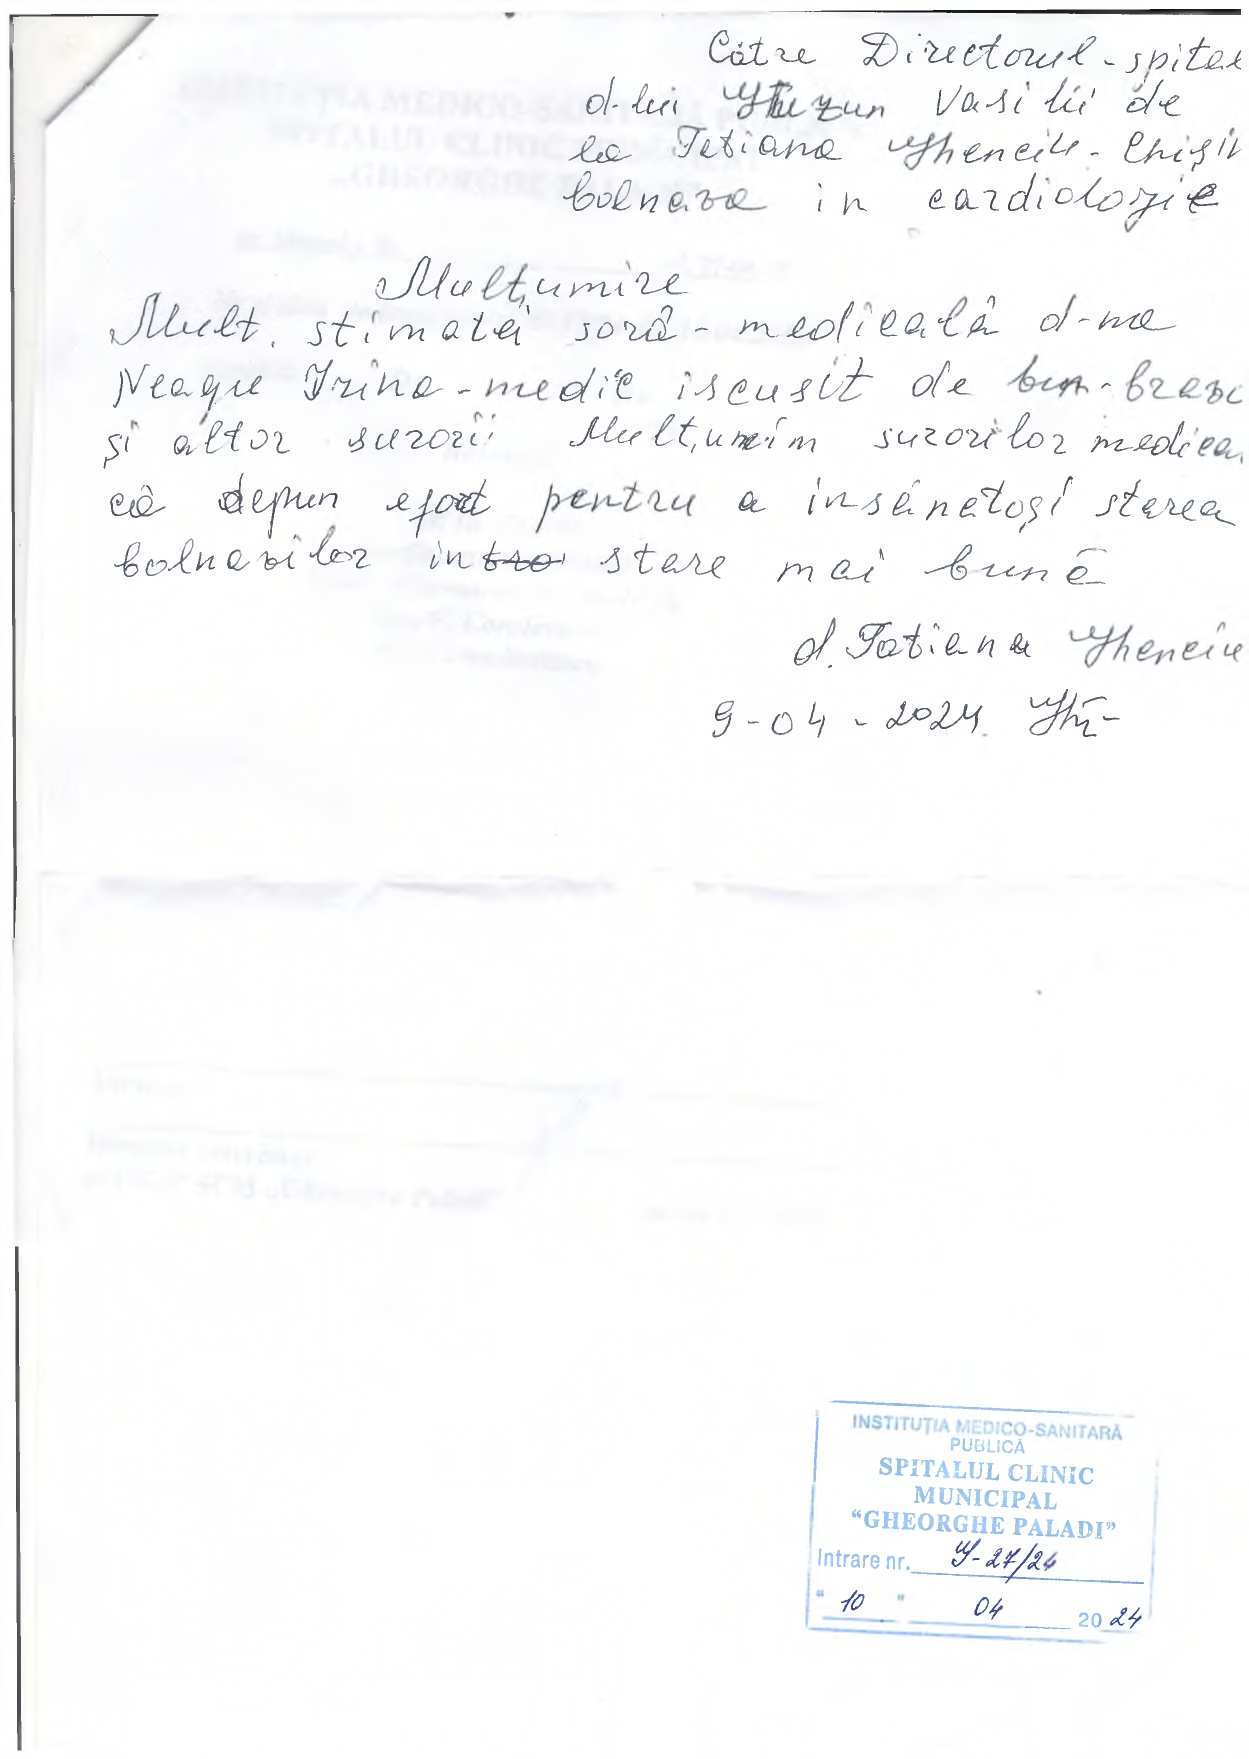 Cátre Directorul-spital
d-lui Ghizun Vasilii de
la Tatiana Ghenciu-Chișin
bolnava in cardiologie
Mulțumire
Mult. stimatei sorâ-medicalâ d-na
Neagu Irina-medic iscusit de
și altor surorii Mulțumim surorilor medica
câ depun efort pentru a insânâtoși starea
bolnavilor in stare mai bunâ
d. Tatiana Ghenciu
9-04-2024
INSTITUȚIA MEDICO-SANITARĂ
PUBLICĂ
SPITALUL CLINIC
MUNICIPAL
“GHEORGHE PALADI”
Intrare nr. G-27/24
“ 10 ” 04 2024